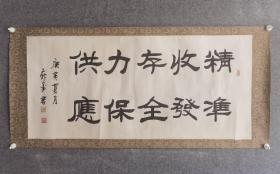 精準
收發
存全
力保
供應
庚寅夏月
書